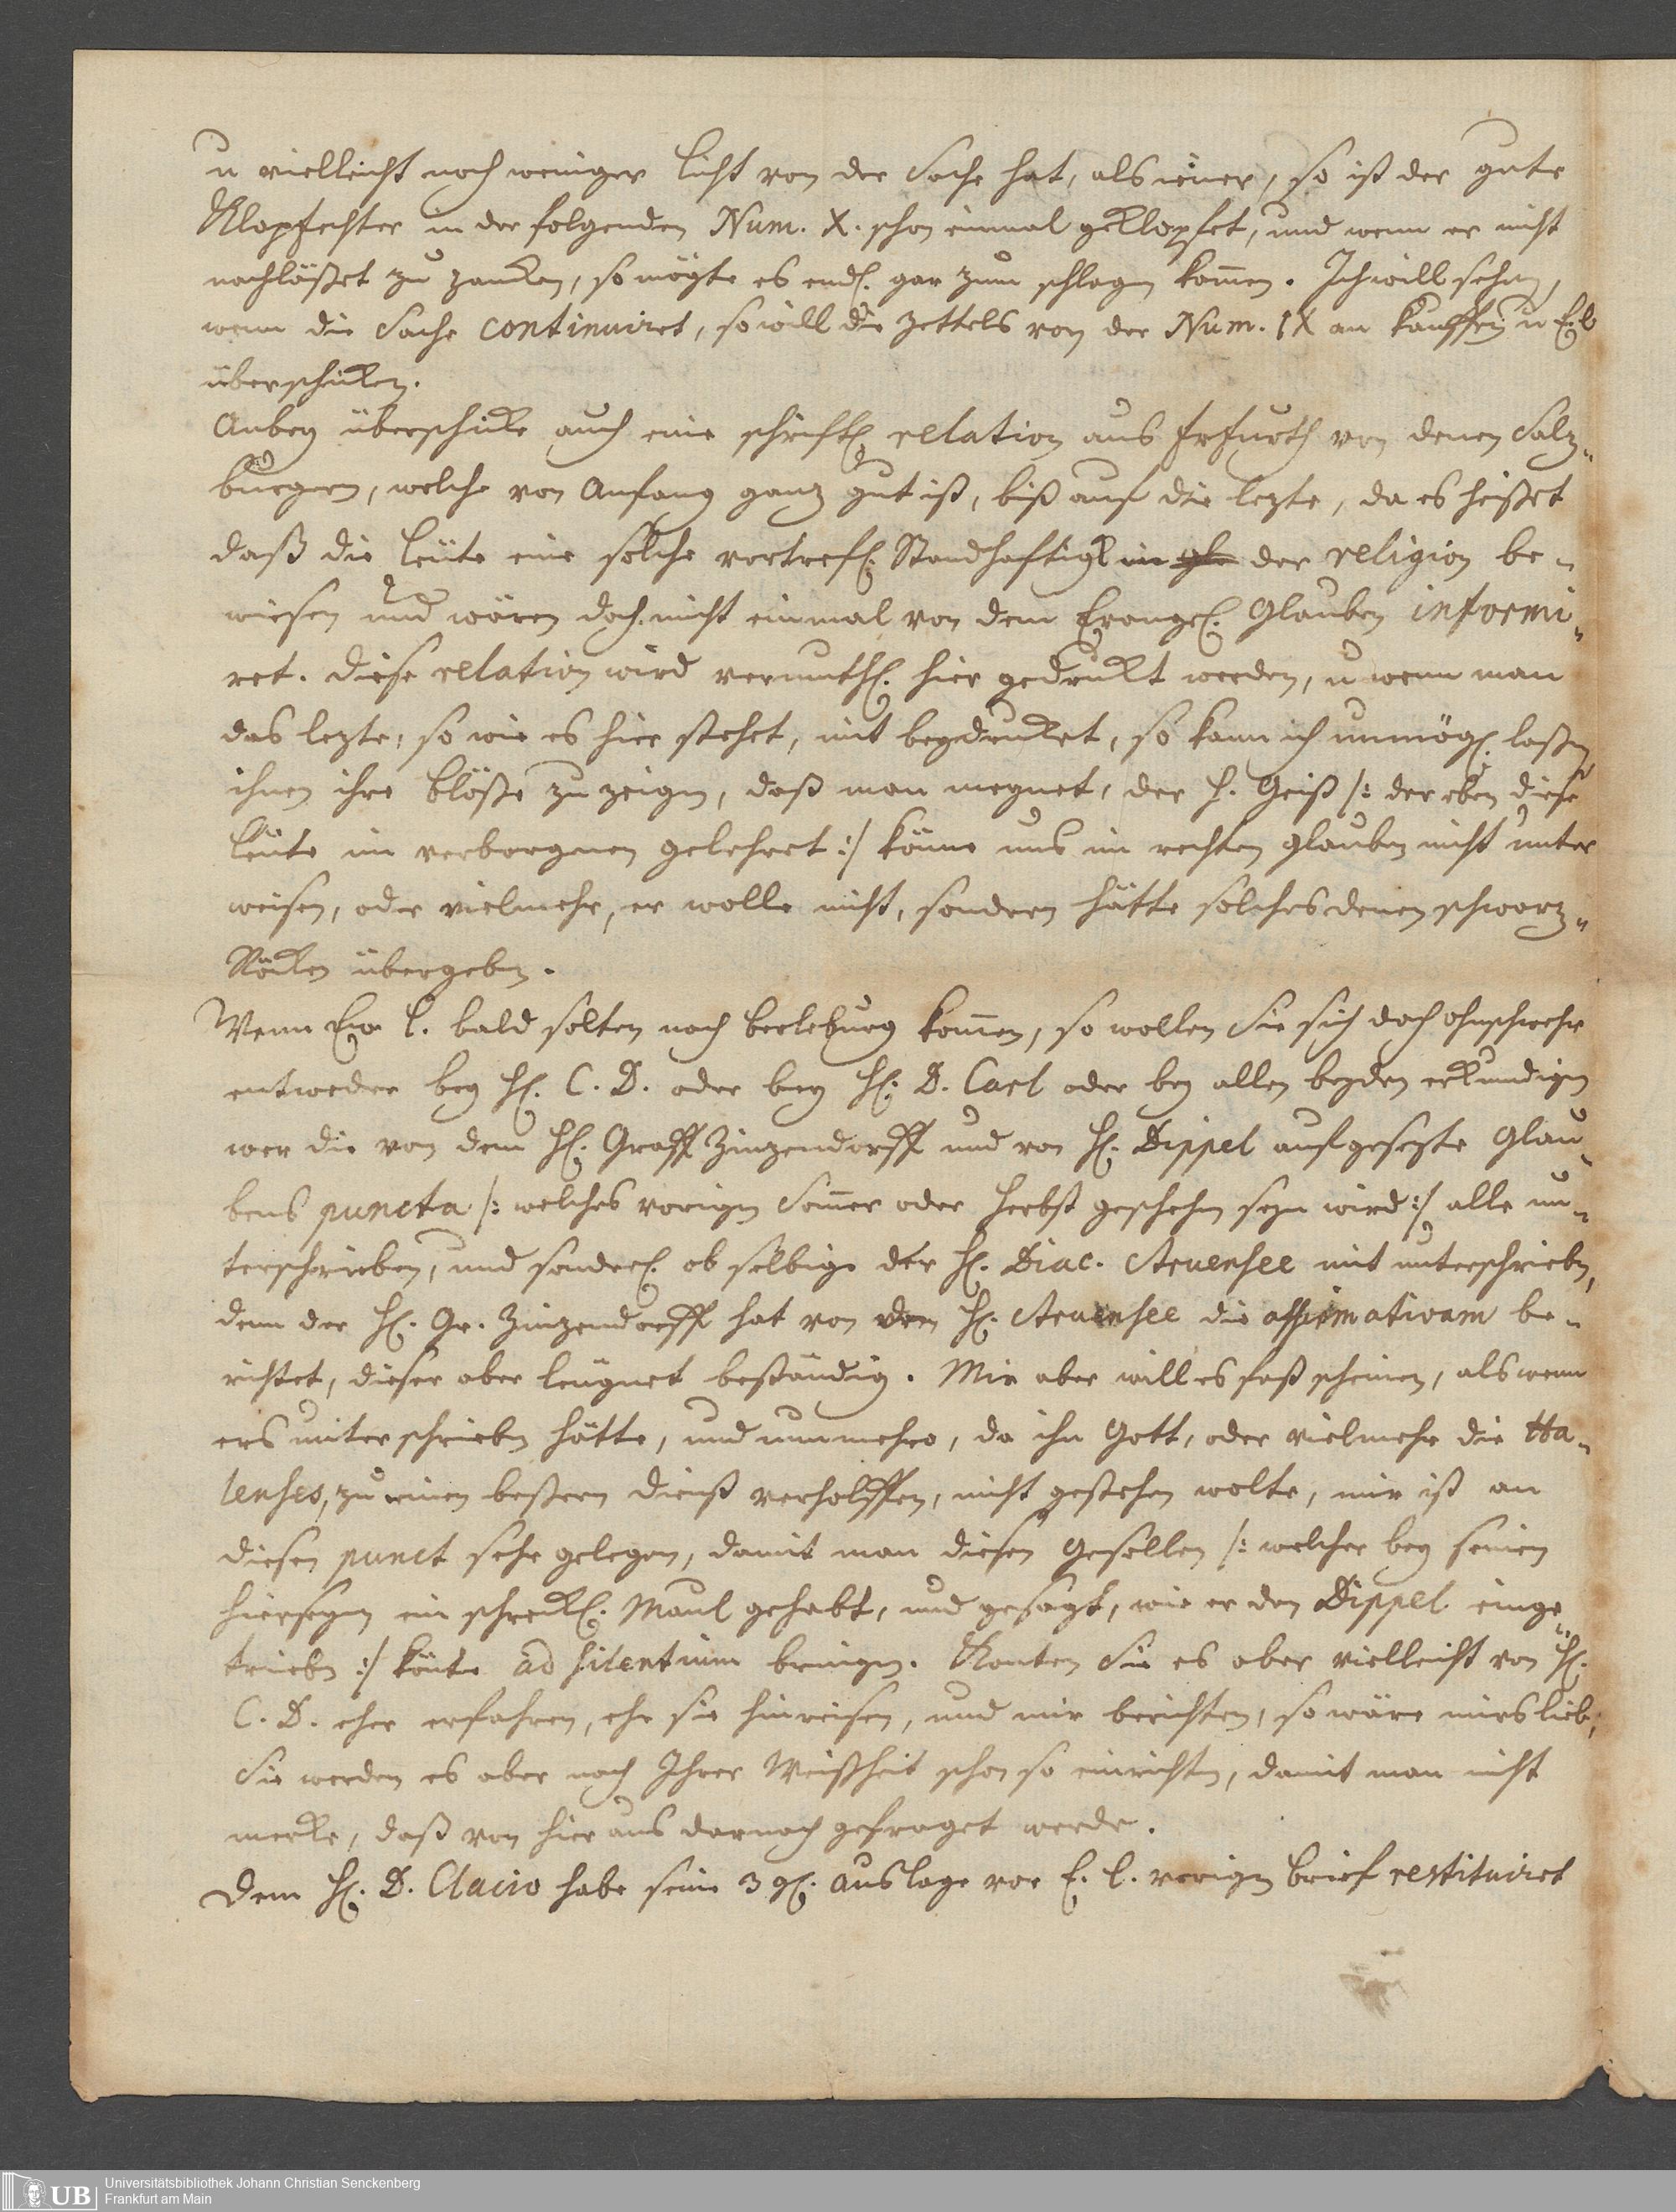 u vielleicht noch weniger licht von der Sache hat, als iener, so ist der gute
Klopfechter in der folgenden Num. X. schon einmal geklopfet, und wenn er nicht
nachläßet zu zancken, so mögte es endl. gar zum schlagen kom̃en. Ich will sehen,
wenn die Sache continuiret, so will die Zettels von der Num. IX an kauffen, u E. l
überschicken.
Anbey überschicke auch eine schriftl. relation aus Erfurth von denen Salz„
burgern, welche von Anfang ganz gut ist, biß auf die lezte, da es heißet
daß die leüte eine solche vortrefl. Standhaftigk. in der religion be„
wiesen und wären doch nicht einmal von dem Evangel. Glauben informi„
ret. diese relation wird vermuthl. hier gedruckt werden, u wenn man
das lezte, so wie es hier stehet, mit beydrucket, so kann ich unmögl. laßen
ihnen ihre blöße zu zeigen, daß man meynet, der H. Geist /: der eben diese
leute im verborgenen gelehret :/ könne uns im rechten glauben nicht unter
weisen, oder vielmehr, er wolle nicht, sondern hätte solches denen schwarz„
Röcken übergeben.
Wenn Ew. l. bald solten nach berleburg kom̃en, so wollen Sie sich doch ohnschwehr
entweder bey H. C. D. oder bey H. D. Carl oder bey allen beyden erkundigen
wer die von dem H. Graff Zinzendorff und von H. Dippel aufgesezte Glau„
bens puncta /: welches vorigen Som̃er oder Herbst geschehen seyn wird :/ alle un„
terschrieben, und sonderl. ob selbige der H. Diac. Struensee mit unterschrieben,
denn der H. Gr. Zinzendorff hat von dem H. Struensee die affirmativam be„
richtet, dieser aber leugnet beständig. Mir aber will es fast scheinen, als wenn
ers unterschrieben hätte, und nunmehro, da ihn Gott, oder vielmehr die Ha„
lenses, zu einen beßern dienst verholffen, nicht gestehen wolte, mir ist an
diesen punct sehr gelegen, damit man diesen Gesellen /: welcher bey seinen
hierseyn ein schreckl. Maul gehabt, und gesagt, wie er den Dippel einge„
trieben :/ könte ad silentium bringen. Konten Sie es aber vielleicht von H.
C. D. eher erfahren, ehe sie hinreisen, und mir berichten, so wäre mirs lieb,
Sie werden es aber nach Ihrer Weißheit schon so einrichten, damit man nicht
mercke, daß von hier aus darnach gefraget werde.
Dem H. D. Clacio habe seine 3 gl. auslage vor E. l. vorigen brief restituiret
Universitätsbibliothek Johann Christian Senckenberg
Frankfurt am Main
UB